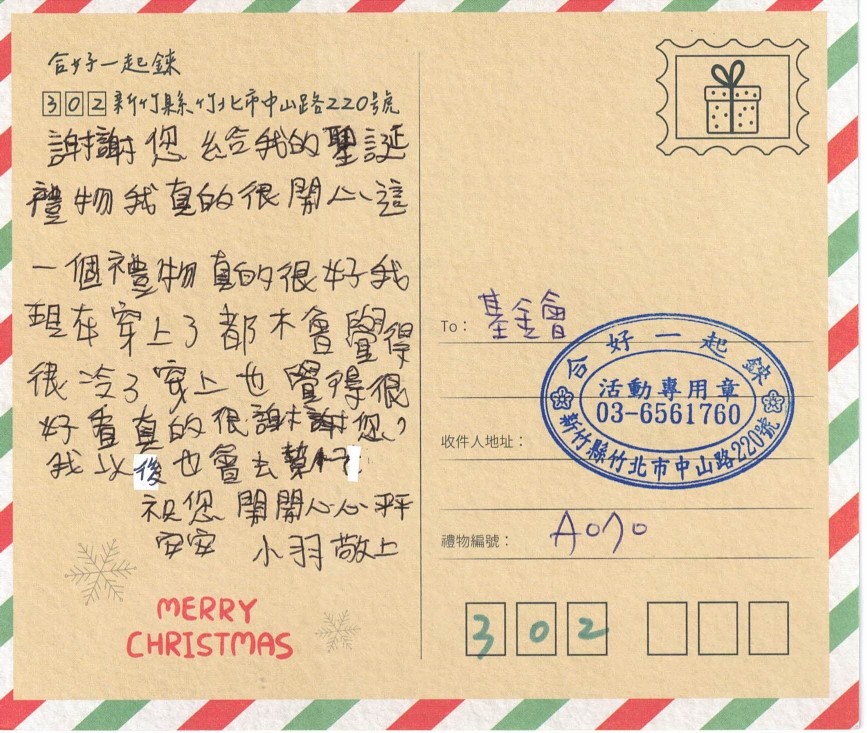 合好一起錸
302 新竹縣竹北市中山路220號
謝謝您給我的聖誕
禮物我真的很開心、這
一個禮物真的很好我
現在穿上了都不會覺得
很冷了穿上也覺得很
好看真的很謝謝您、
我以後也會去幫忙
祝您開開心心平平
安安 小羽敬上
MERRY
CHRISTMAS
To: 基金會
合好一起錸
活動專用章
03-6561760
新竹縣竹北市中山路220號
收件人地址:
禮物編號: A070
302